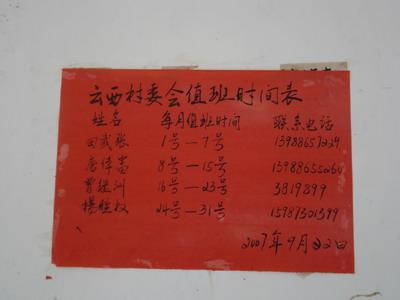 云西村委会值班时间表
姓名 每月值班时间 联系电话
田武张 1号—7号 13988657239
唐伟富 8号—15号 13988655260
曾继洲 16号—23号 3819899
杨胜权 24号—31号 15987301399
2007年9月22日